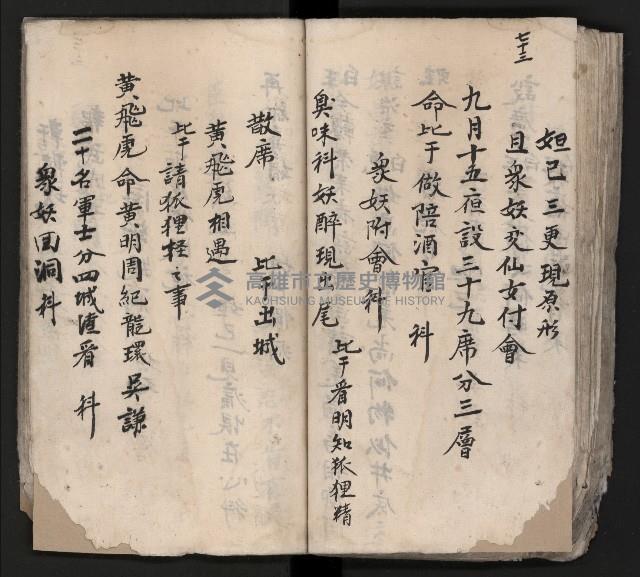 七十三
妲己三更現原形
且衆妖变仙女付會
九月十五夜設三十九席分三層
命比干做陪酒官 科
衆妖附會科
臭味科妖醉現出尾 比干看明知狐狸精
散席 比干出城
黄飛虎相遇
比干請狐狸怪之事
黄飛虎命黄明周紀龍環吴謙
二十名軍士分四城渣看 科
衆妖回洞科
高雄市立歷史博物館
KAOHSIUNG MUSEUM OF HISTORY